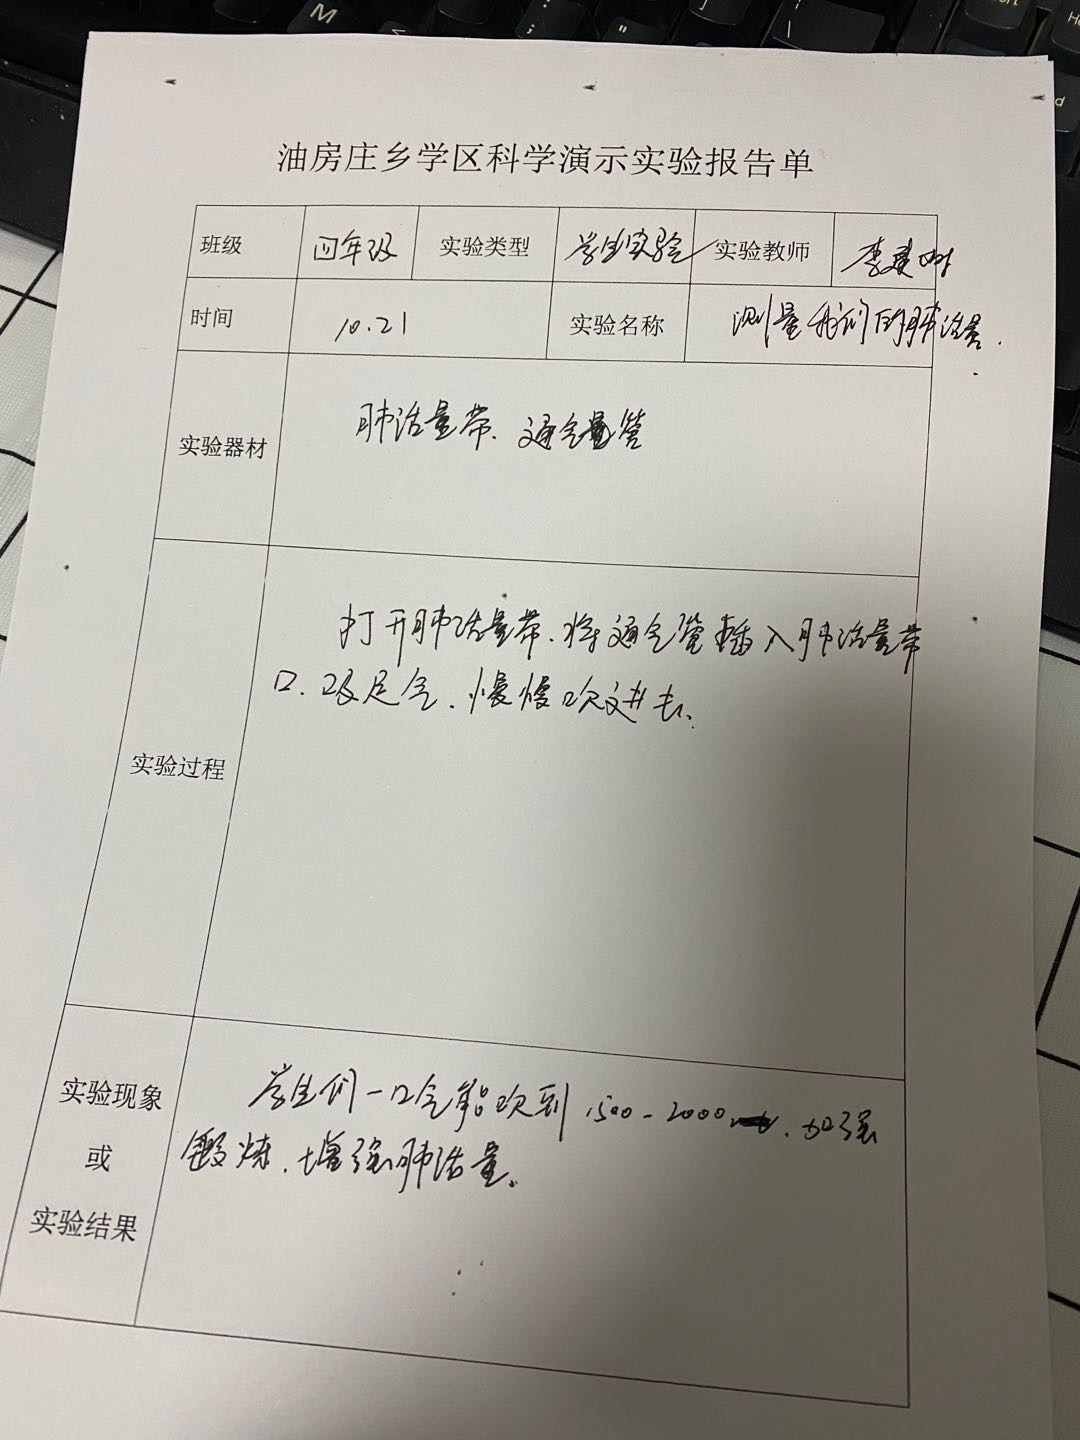 油房庄乡学区科学演示实验报告单
班级 四年级 实验类型 学生实验 实验教师 李建
时间 10.21 实验名称 测量我们的肺活量.
实验器材 肺活量带、通气量管
实验过程
打开肺活量带、将通气管插入肺活量带
口、吸足气、慢慢吹进去.
实验现象
或
实验结果
学生们一口气能吹到1500-2000 、加强
锻炼、增强肺活量。